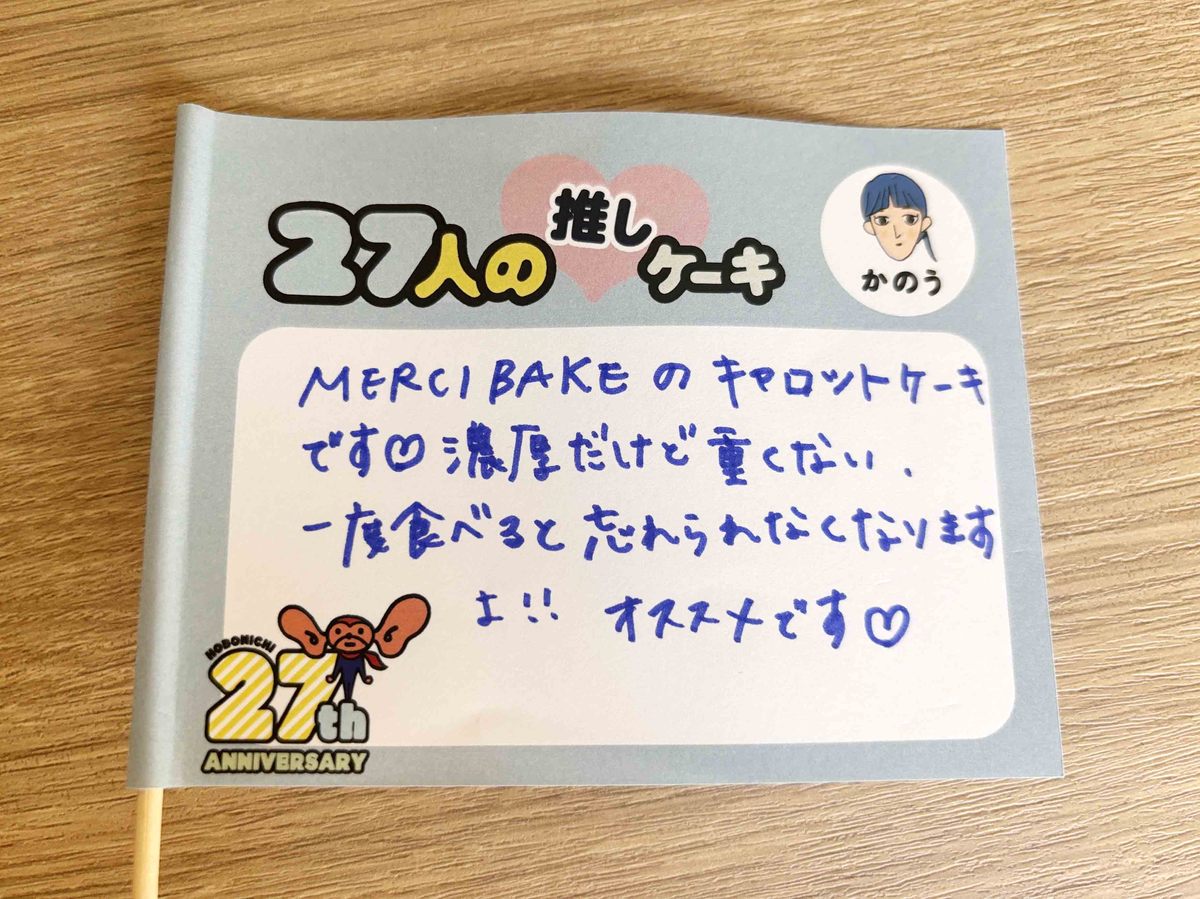 27人の推しケーキ
かのう
MERCI BAKE の キャロットケーキ
です♡ 濃厚だけど 重くない、
一度食べると 忘れられなくなります
よ!! オススメです♡
HOBONICHI
27th
ANNIVERSARY